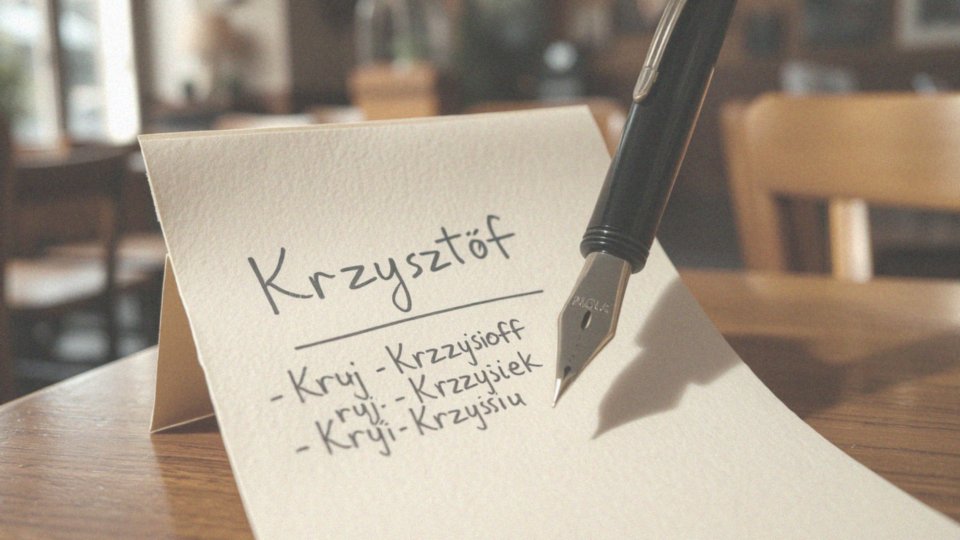 Krzysztöf
- Kruj - Krzzysioff
ruj. - Krzzysiek
- Kryji - Krzyssiu